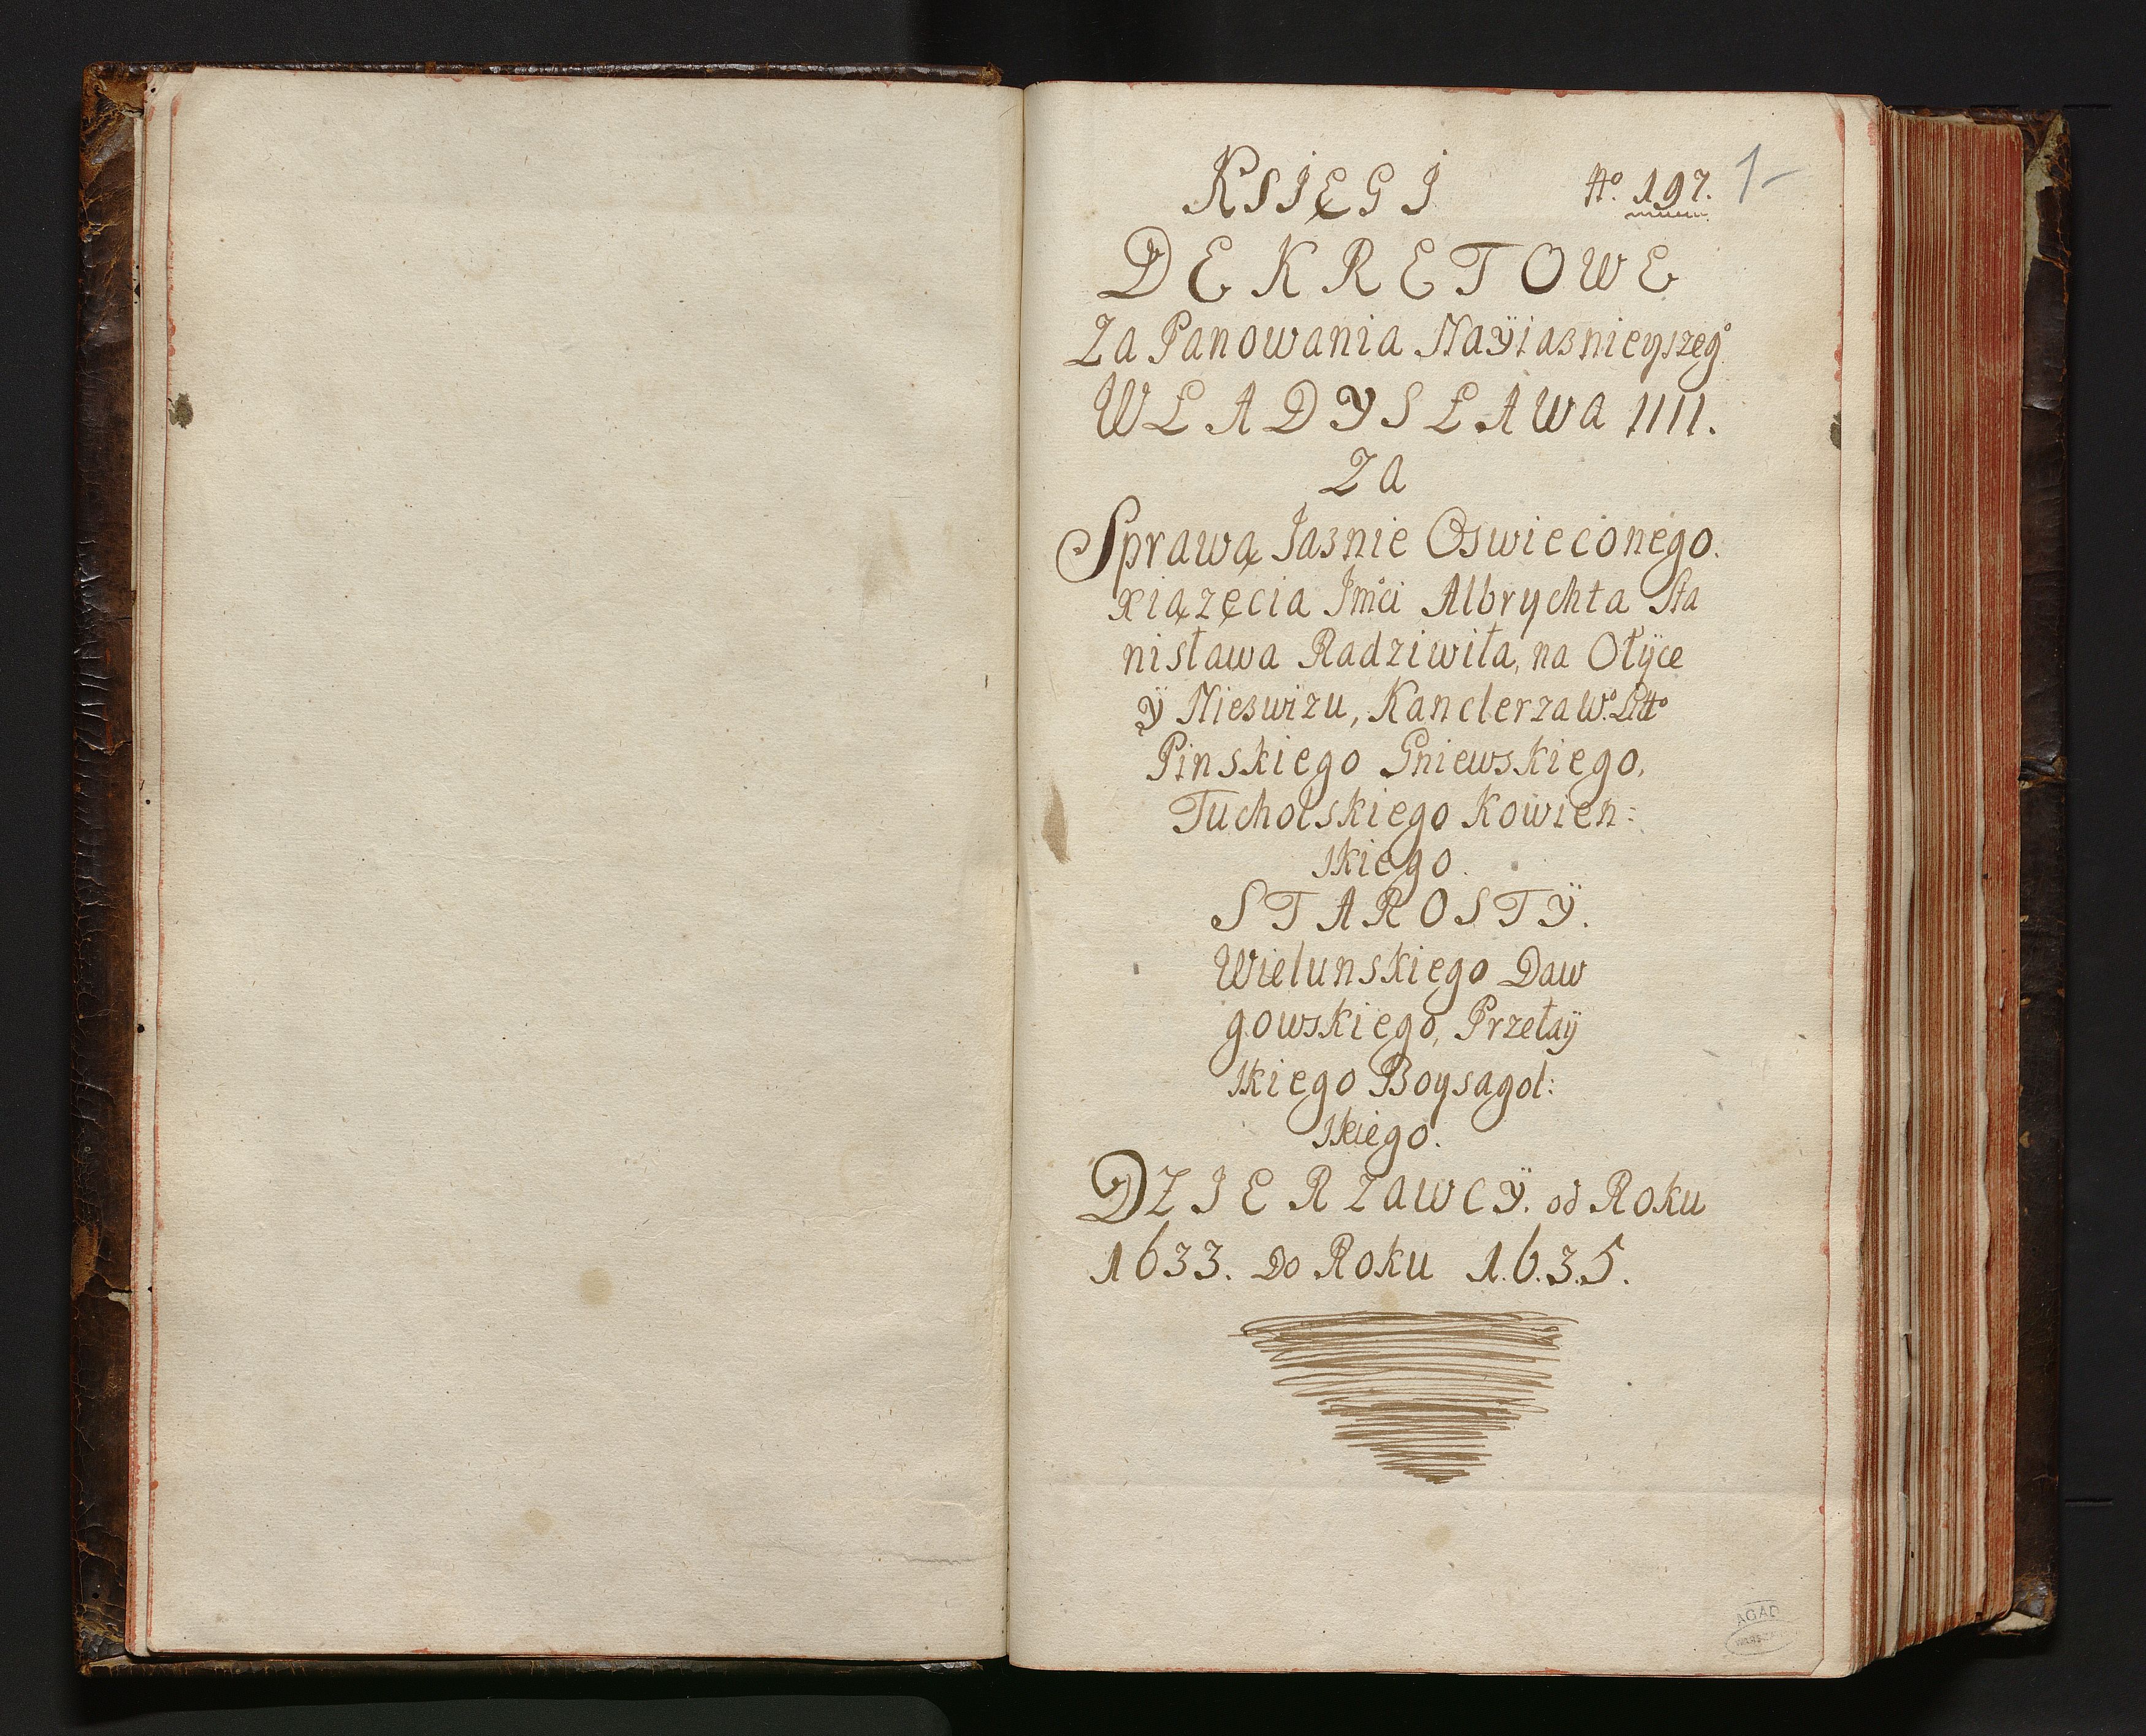 KSIĘGI Nº. 197. 1
DEKRETOWE
Za Panowania Nayiasnieyszegº
WŁADYSŁAWA IIII.
ZA
Sprawą Jasnie Oswieconego.
xiążęcia Jmci Albrychta Sta
nisława Radziwiła, na Ołyce
ÿ Nieswizu, Kanclerza Wº. Littº
Pinskiego Gniewskiego,
Tucholskiego Kowien:
skiego.
STAROSTŸ.
Wielunskiego Daw
gowskiego, Przełaÿ
skiego Boysagol:
skiego.
DZIERZAWCŸ. od Roku
1633. Do Roku 1.6.3.5.
AGAD